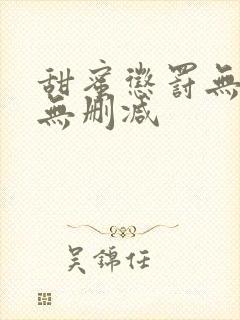 甜蜜懲罰無
無刪減
吳錦任